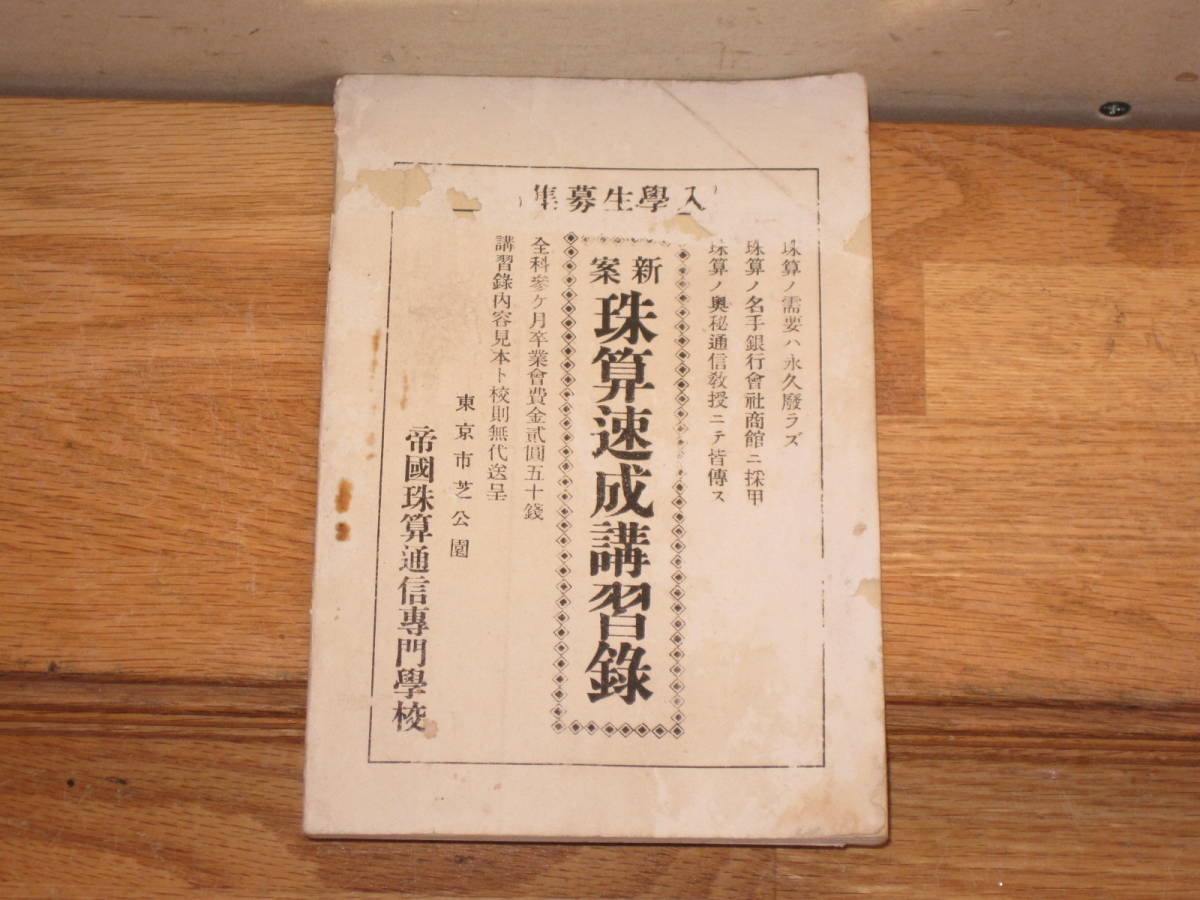 入學生募集
珠算ノ需要ハ永久廢ラズ
珠算ノ名手銀行會社商館ニ採甲
珠算ノ奧秘通信敎授ニテ皆傳ス
新案
珠算速成講習錄
全科參ケ月卒業會費金貳圓五十錢
講習錄內容見本ト校則無代送呈
東京市芝公園
帝國珠算通信專門學校